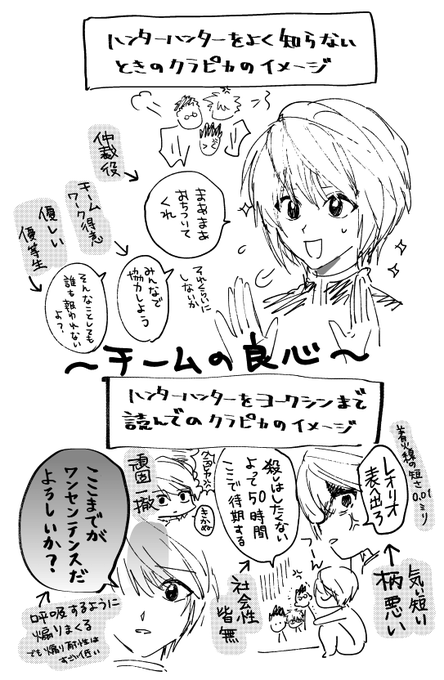 ハンターハンターをよく知らない
ときのクラピカのイメージ
仲裁役
チーム
ワーク得意
優しい
優等生
まぁまぁ
おちついて
くれ
それくらいに
しないか
みんなで
協力しよう
そんなことしても
誰も報われない
よ？
～チームの良心～
ハンターハンターをヨークシンまで
読んでのクラピカのイメージ
導火線の短さ0.01
ミリ
レオリオ
表へ出ろ
気い短い
柄悪い
殺しはしたくない
よって50時間
ここで待期する
社会性
皆無
頑固一徹
きかぬ
ここまでが
ワンセンテンスだ
よろしいか？
呼吸するように
煽りまくる
でも煽り耐性は
すごい低い